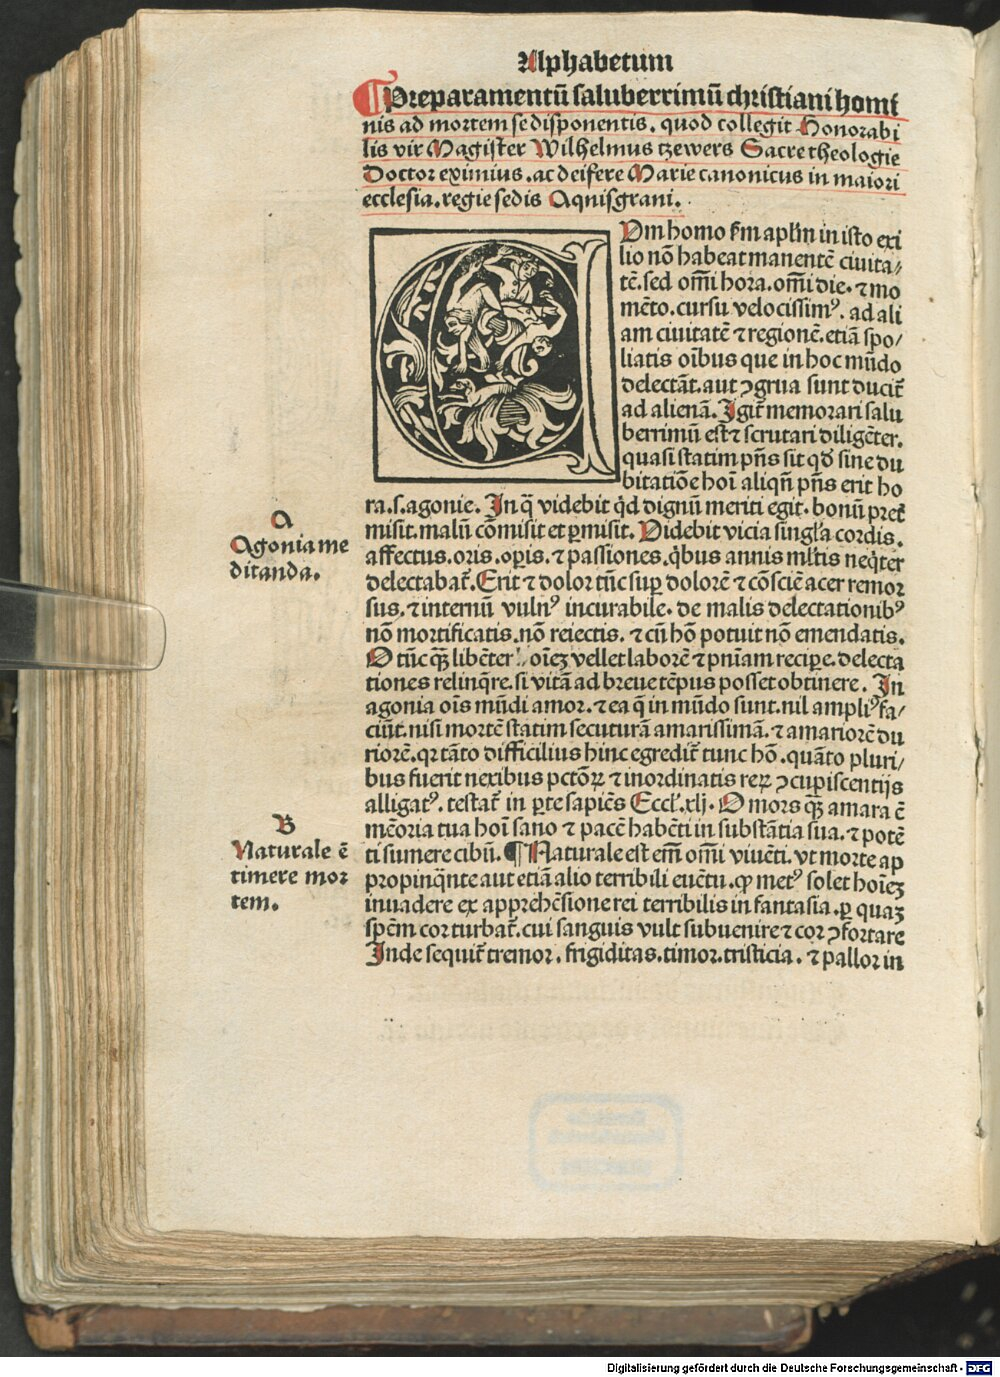 Alphabetum
¶Preparamentū saluberrimū christiani homi
nis ad mortem se disponentis. quod collegit Honorabi
lis vir Magister Wilhelmus tzewers Sacre theologie
Doctor eximius. ac deifere Marie canonicus in maiori
ecclesia. regie sedis Aquisgrani.
Om homo scḋm apl̄m in isto exi
lio nō habeat manentē ciuita⸗
tē. sed om̄i hora. om̄i die. ⁊ mo
mēto. cursu velocissimꝰ. ad ali
am ciuitatē ⁊ regionē. etiā spo⸗
liatis oībus que in hoc mūdo
delectāt. aut ꝯgrua sunt ducit̄
ad alienā. Igit̄ memorari salu
berrimū est ⁊ scrutari diligēter.
quasi statim p̄ns sit qḋ sine du
bitatiōe hoī aliqn̄ p̄ns erit ho
ra. s. agonie. In q̄ videbit qd dignū meriti egit. bonū p̄ter
misit. malū cōmisit et ꝑmisit. Videbit vicia singl̄a cordis.
affectus. oris. oꝑis. ⁊ passiones. qbus annis ml̄tis neq̄ter
delectabat̄. Erit ⁊ dolor tūc suꝑ dolorē ⁊ cōsciē acer remor
sus. ⁊ internū vulnꝰ incurabile. de malis delectationibꝰ
nō mortificatis. nō reiectis. ⁊ cū hō potuit nō emendatis.
O tūc qꝫ libēter oīeꝫ vellet laborē ⁊ pn̄iam reciꝑe. delecta
tiones relinq̄re. si vitā ad breue tēpus posset obtinere. In
agonia ois mūdi amor. ⁊ ea q̄ in mūdo sunt. nil ampliꝰ fa⸗
ciūt. nisi mortē statim secuturā amarissimā. ⁊ amariorē du
riorē. qꝛ tāto difficilius hinc egredit̄ tunc hō. quāto pluri⸗
bus fuerit nexibus pctōꝝ ⁊ inordinatis reꝝ ꝯcupiscentijs
alligatꝰ. testat̄ in ꝑte sapiēs Eccl̄. xlj. O mors qꝫ amara ē
mēoria tua hoī sano ⁊ pacē habēti in substātia sua. ⁊ potē
ti sumere cibū. ¶ Naturale est em̄ om̄i viuēti. vt morte ap
propinq̄nte aut etiā alio terribili euētu. ꝙ metꝰ solet hoīeꝫ
inuadere ex apprehēsione rei terribilis in fantasia. ꝑ quaꝫ
spēm cor turbat̄. cui sanguis vult subuenire ⁊ cor ꝯfortare
Inde sequit̄ tremor. frigiditas. timor. tristicia. ⁊ pallor in
A
Agonia me
ditanda.
B
Naturale ē
timere mor
tem.
Digitalisierung gefördert durch die Deutsche Forschungsgemeinschaft - DFG